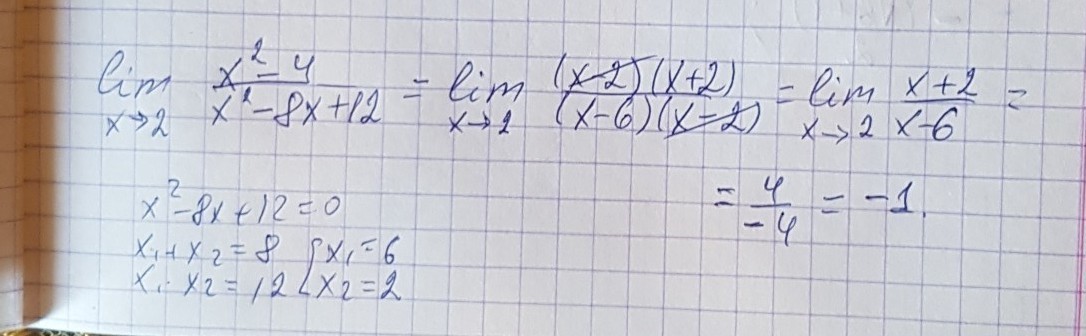 lim x→2 (x² - 4)/(x² - 8x + 12) = lim x→2 ((x-2)(x+2))/((x-6)(x-2)) = lim x→2 (x+2)/(x-6) =
= 4/-4 = -1.
x² - 8x + 12 = 0
x₁ + x₂ = 8 { x₁ = 6
x₁ · x₂ = 12 { x₂ = 2